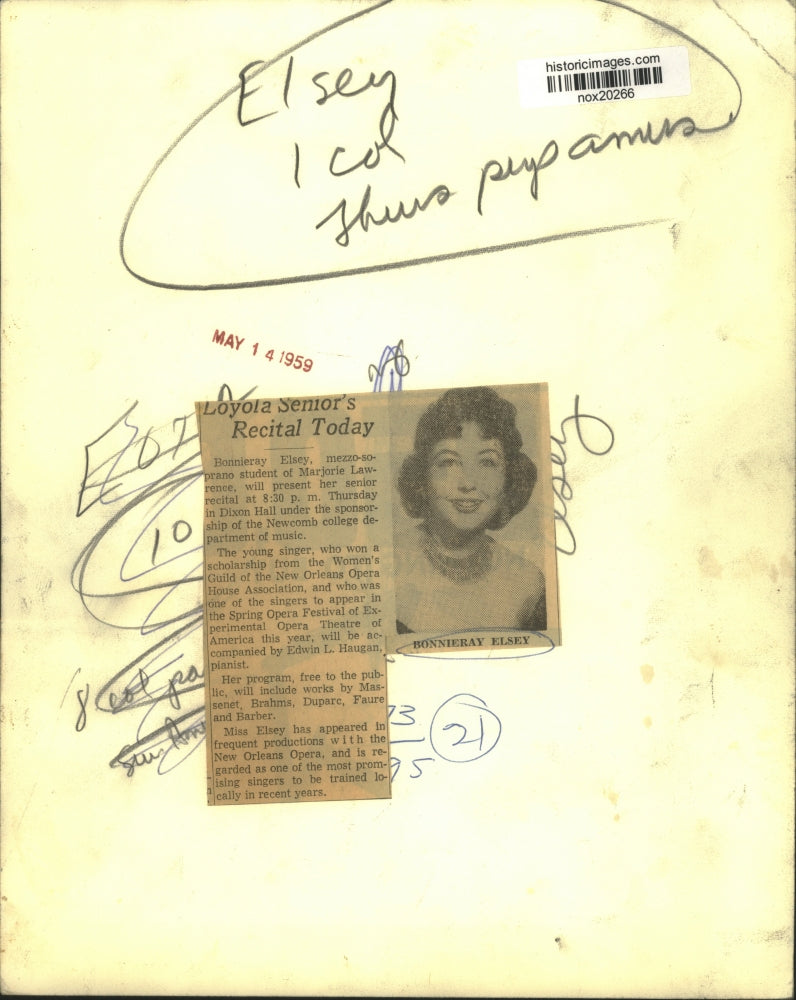 historicimages.com
nox20266
Elsey
1 col
Thurs
MAY 14 1959
Loyola Senior's
Recital Today
Bonnieray Elsey, mezzo-so-
prano student of Marjorie Law-
rence, will present her senior
recital at 8:30 p. m. Thursday
in Dixon Hall under the sponsor-
ship of the Newcomb college de-
partment of music.
The young singer, who won a
scholarship from the Women's
Guild of the New Orleans Opera
House Association, and who was
one of the singers to appear in
the Spring Opera Festival of Ex-
perimental Opera Theatre of
America this year, will be ac-
companied by Edwin L. Haugan,
pianist.
Her program, free to the pub-
lic, will include works by Mas-
senet, Brahms, Duparc, Faure
and Barber.
Miss Elsey has appeared in
frequent productions with the
New Orleans Opera, and is re-
garded as one of the most prom-
ising singers to be trained lo-
cally in recent years.
BONNIERAY ELSEY
10
8 col
21